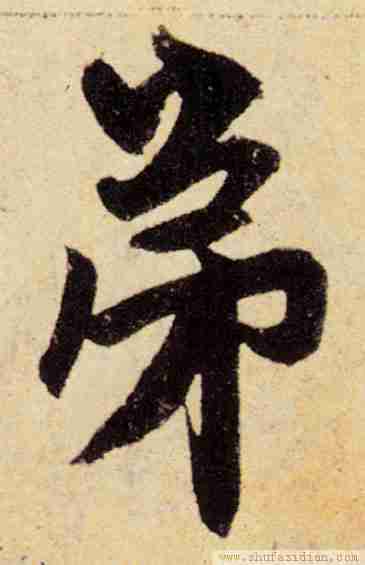 弟
www.shufazidian.com